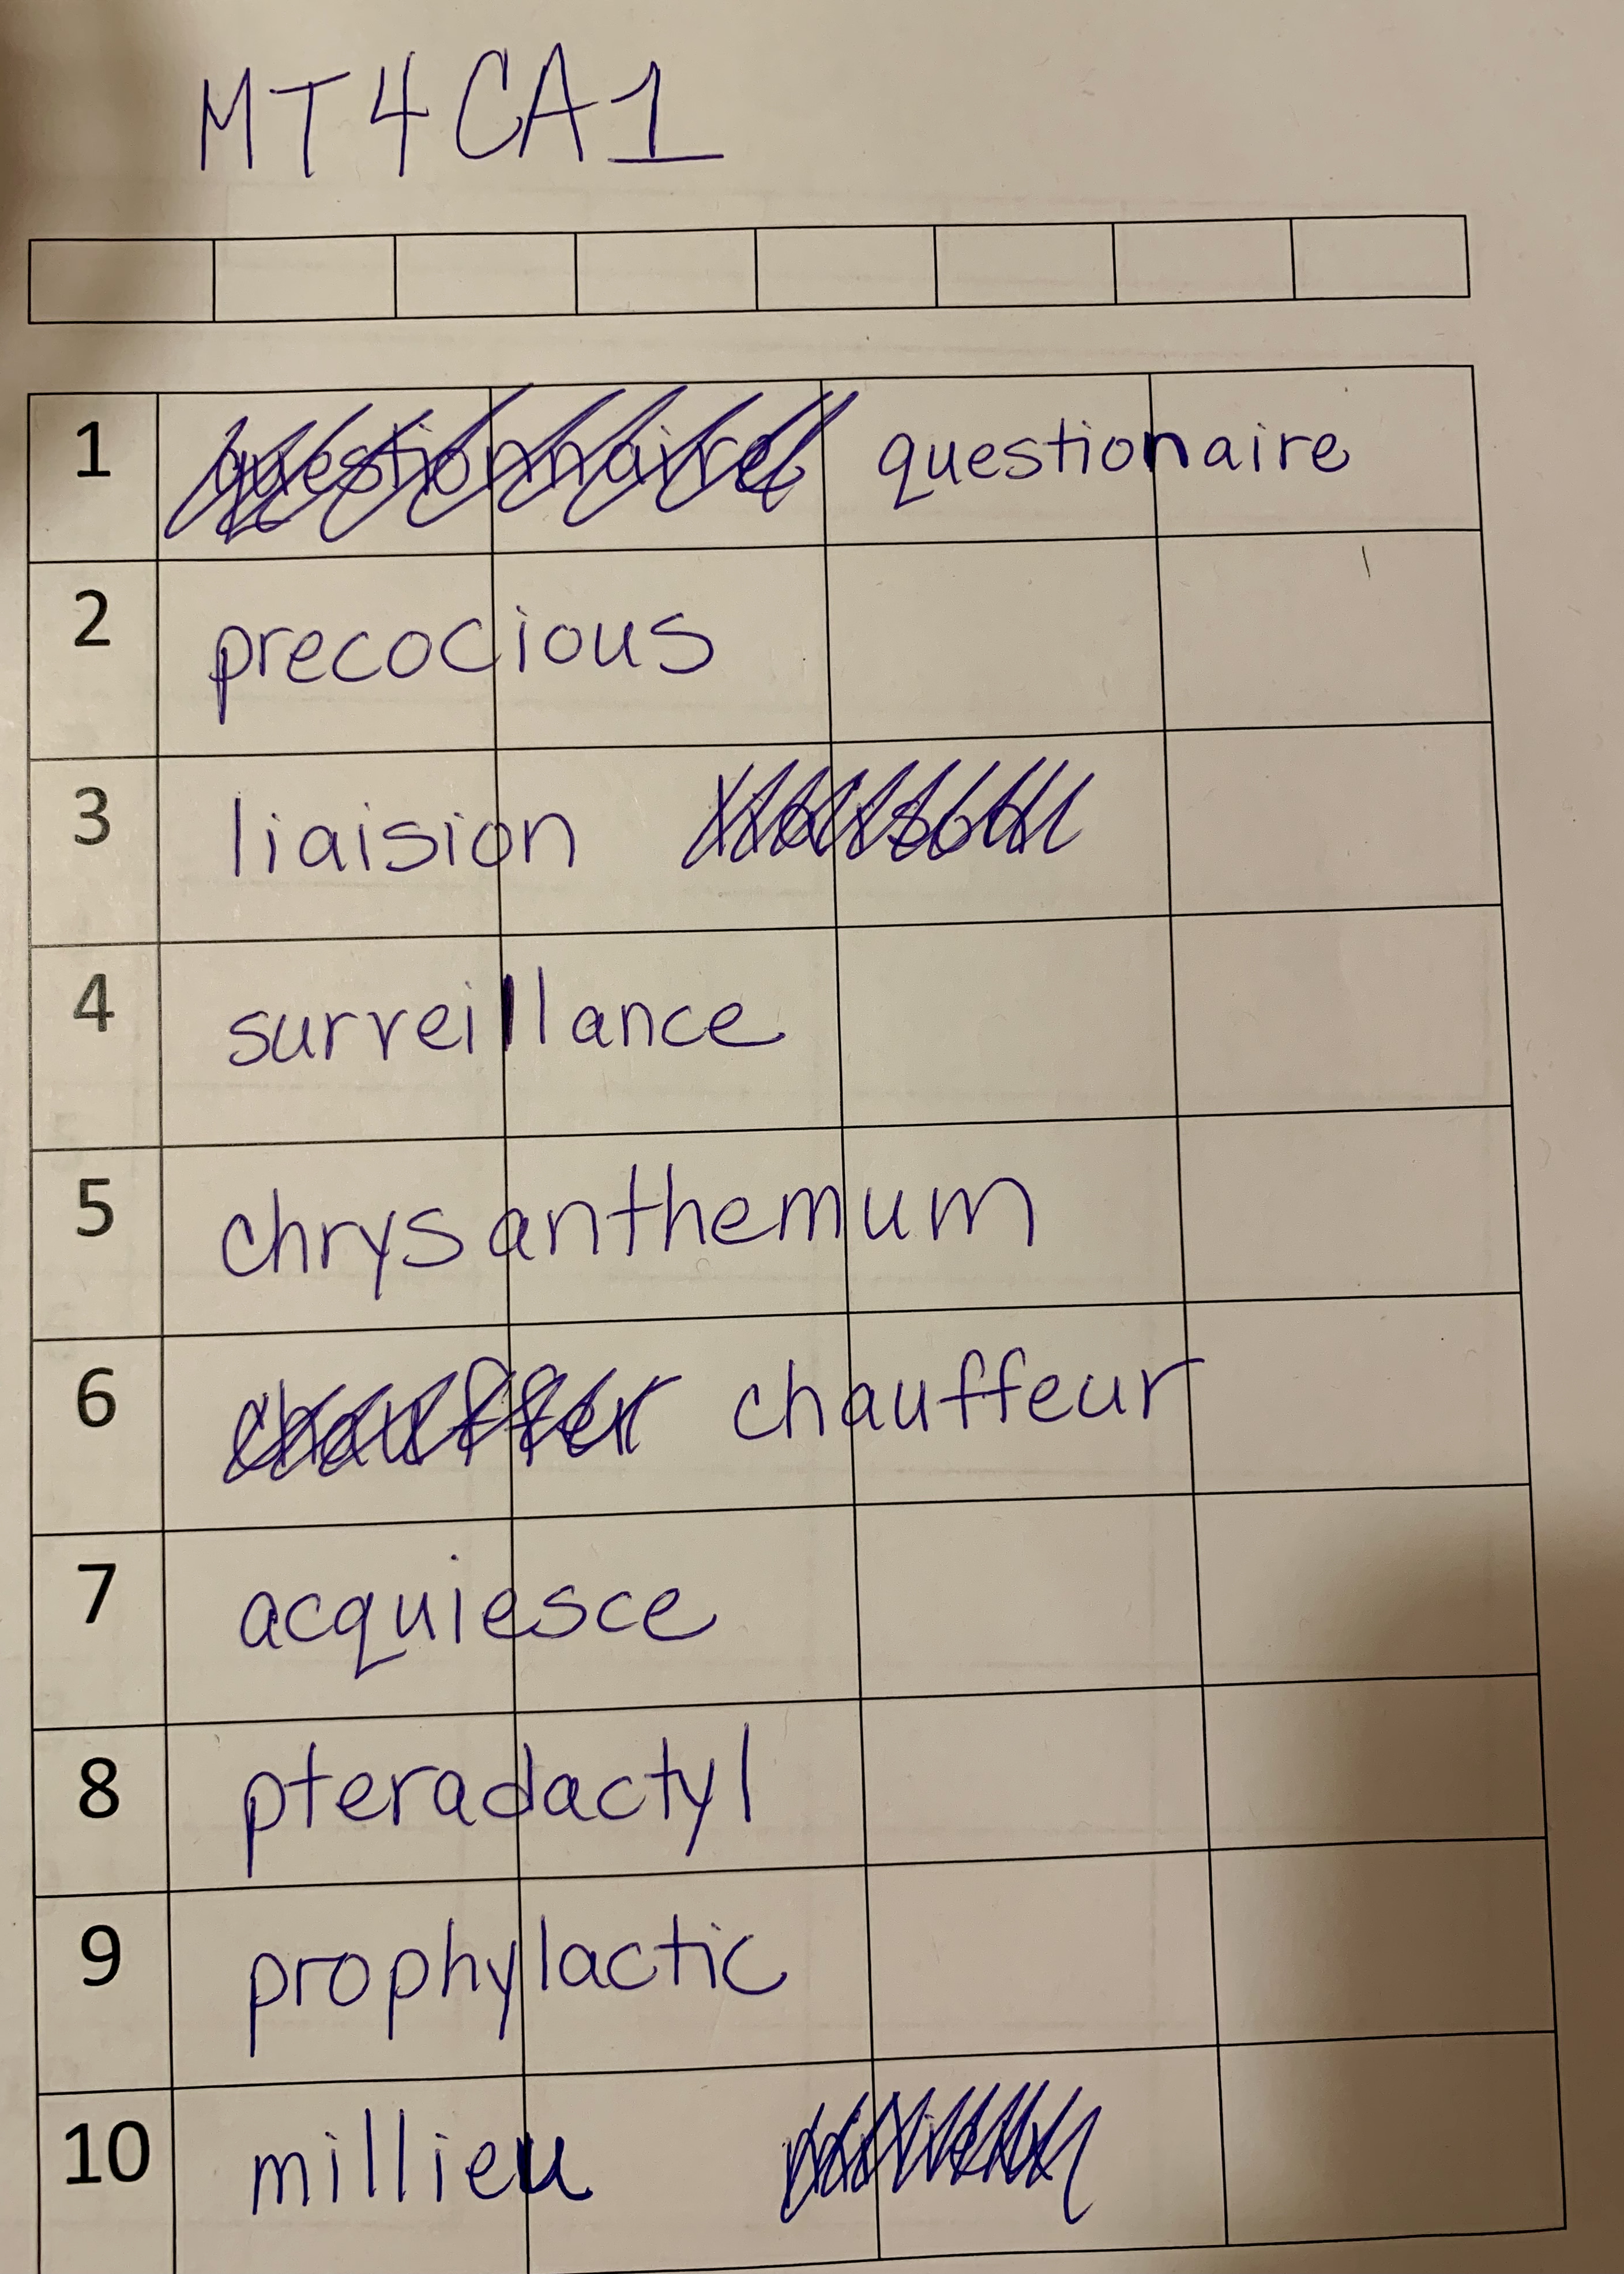 MT4CA1
1 questionnaire questionaire
2 precocious
3 liaision
4 surreillance
5 chrysanthemum
6 chauffer chauffeur
7 acquiesce
8 pteradactyl
9 prophylactic
10 millieu